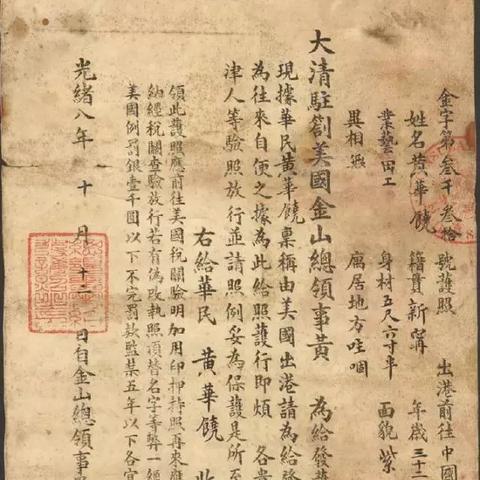 金字第叁千叁拾 號護照 出港前往中國
姓名黃華饒 籍貫新寗 年歲三十二
業藝田工 身材五尺六寸半 面貌紫
異相無 寓居地方哇個
大清駐劄美國金山總領事黃 為給發
現據華民黃華饒稟稱由美國出港請為給發
為往來自便之據為此給照護行即煩 各貴
津人等驗照放行並請照例妥為保護是所至
右給華民 黃華饒
領此護照應前往美國稅關驗明加用印押持照再來應
納經稅關查驗放行若有偽改執照頂替名字等弊一經
美國例罰銀壹千圓以下不完罰款監禁五年以下各宜
光緒八年 十 月 十 日自金山總領事